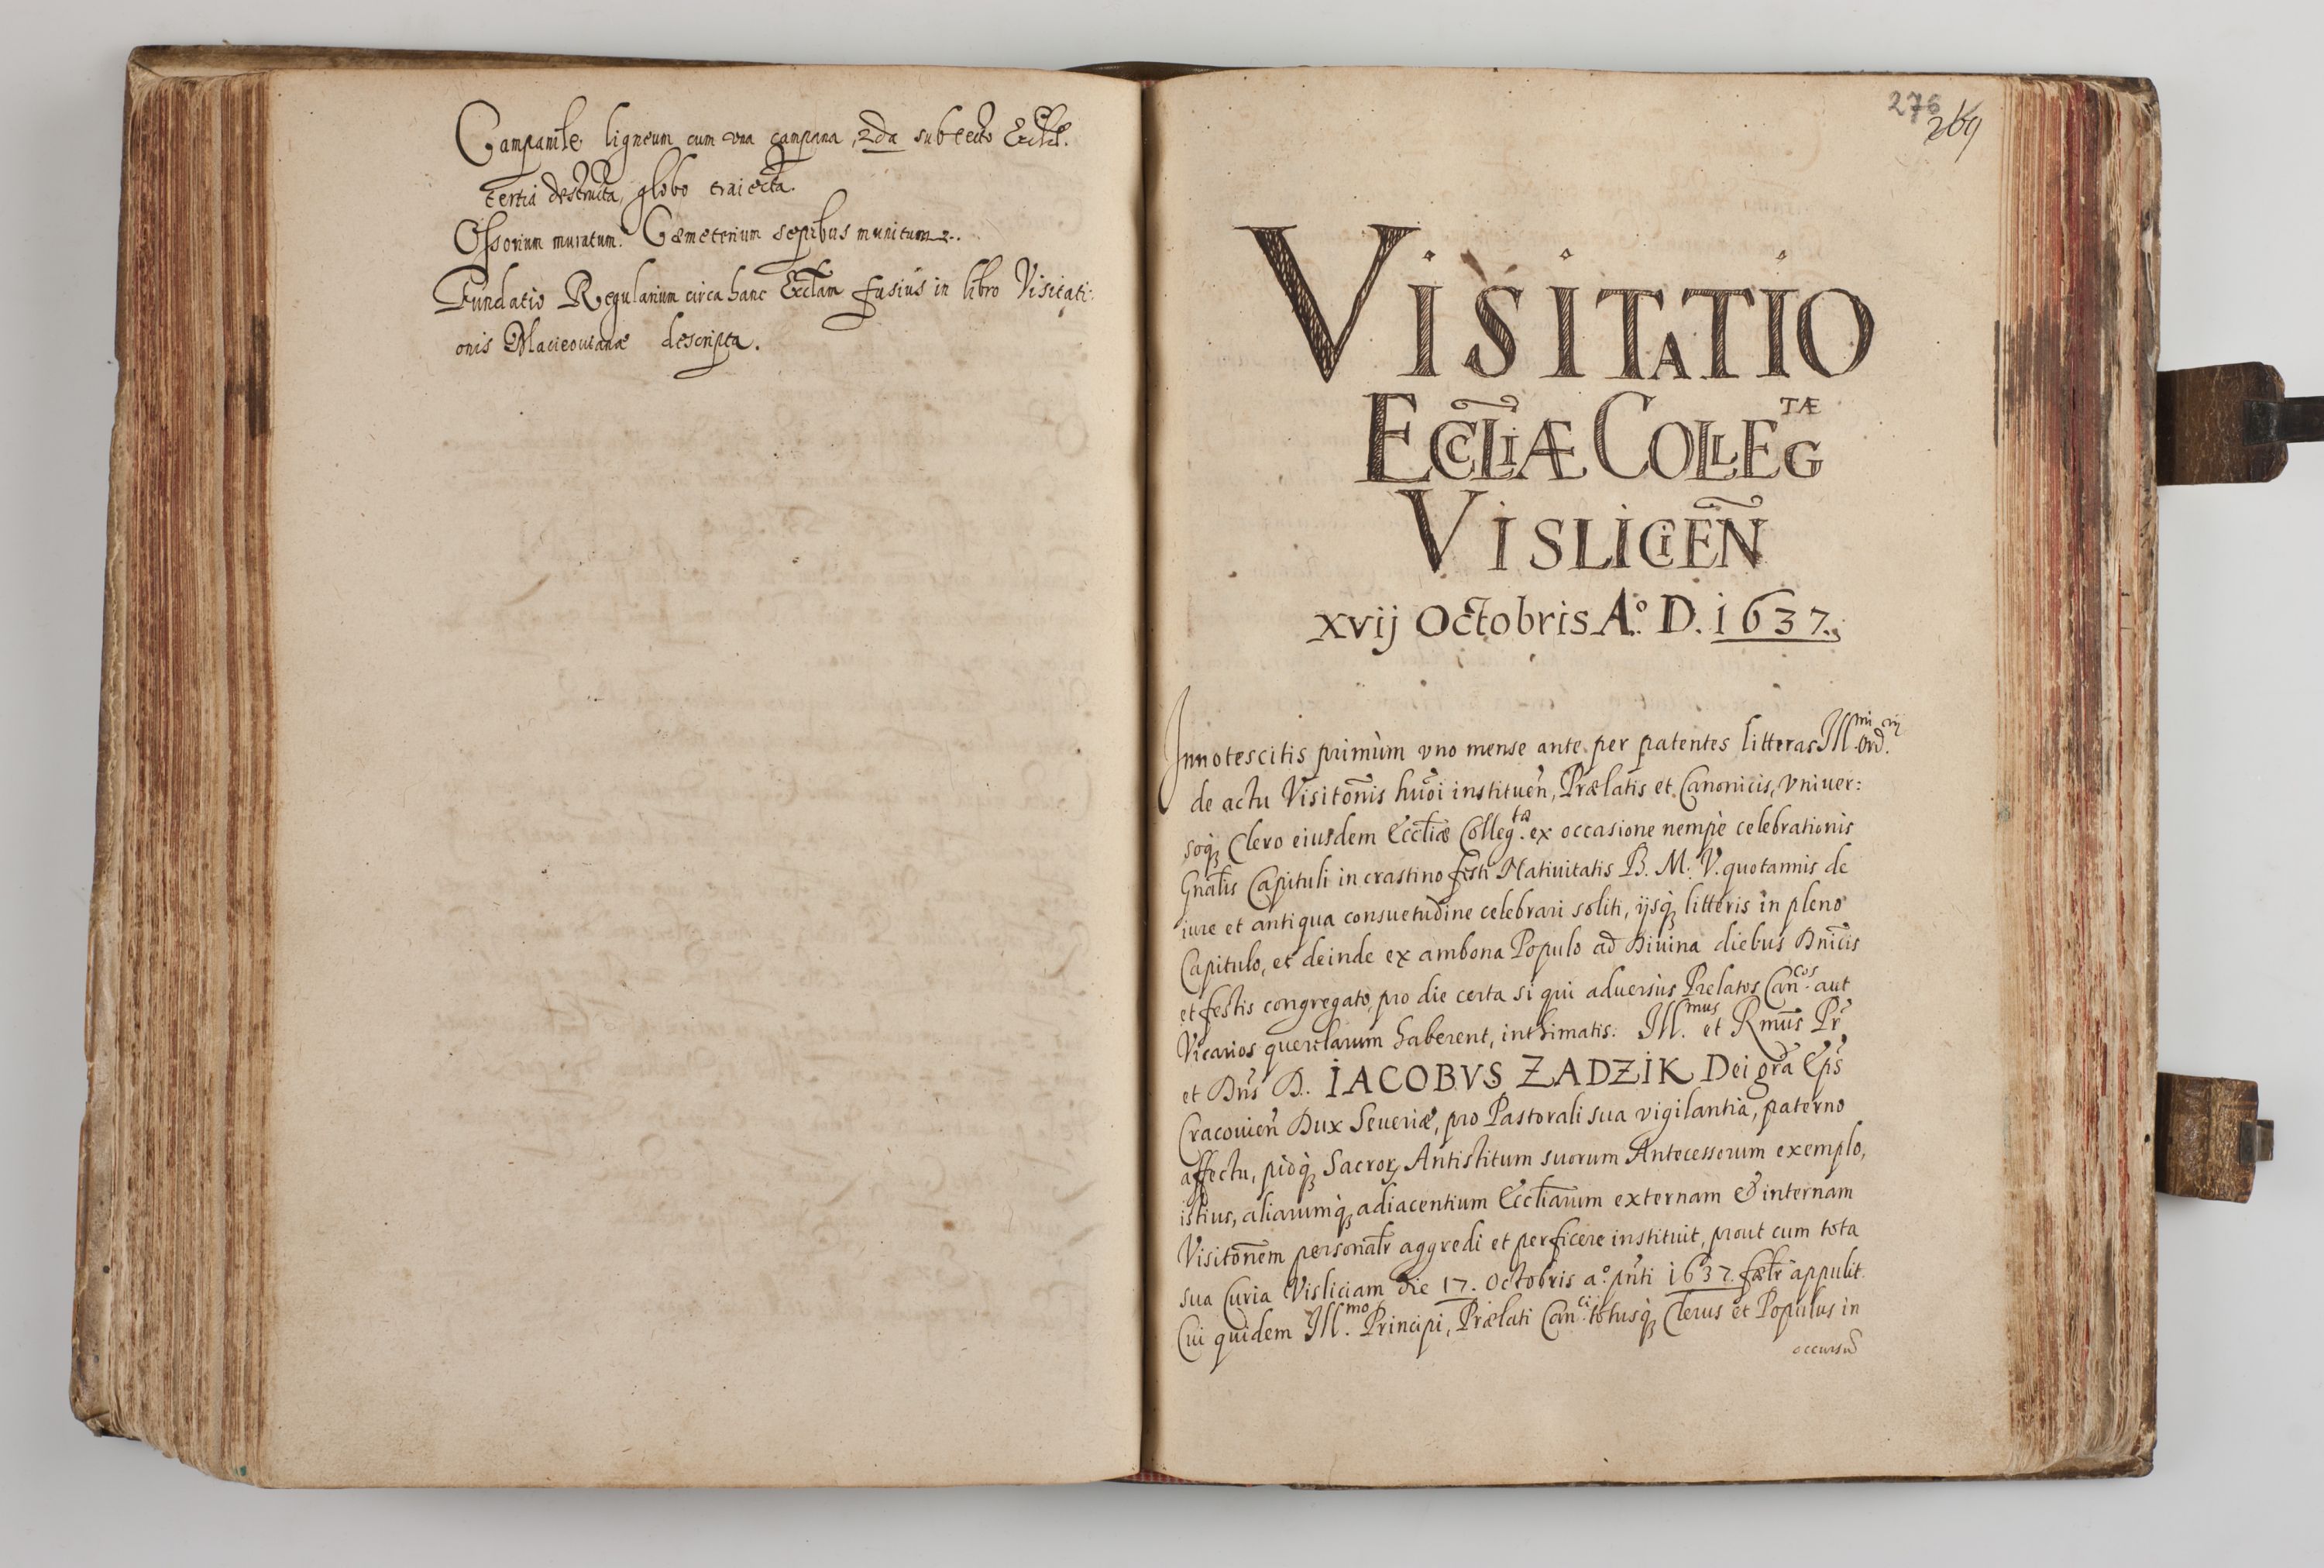 Campanile ligneum cum una campana, 2da sub tecto Eccliæ.
tertia destructa, globo traiecta.
Ossorium muratum. Cæmeterium sepibus munitum.
Fundatio Regularium circa hanc Eccliam fusius in libro Visitati:
onis Macieoviana descripta.
276
269
VISITATIO
ECCLIÆ COLLEG TÆ
VISLICIEN̄
xvij Octobris A.º D. 1637.
Innotescitis primùm vno mense ante per patentes litteras Ill.mi Ord.rij
de actu Visitōnis hūoi instituen̄, Prælatis et Canonicis, Vniuer:
soq; Clero eiusdem Eccliæ Colleg.tæ ex occasione nempè celebrationis
Gnālis Capituli in crastino festi Natiuitatis B. M. V. quotannis de
iure et antiqua consuetudine celebrari soliti, ijsq; litteris in pleno
Capitulo, et deinde ex ambona Populo ad Diuina diebus Dnicis
et festis congregato, pro die certa si qui aduersùs Prelatos Can.cos aut
Vicarios querelarum haberent, inthimatis. Ill.mus et Rmūs Pr̄
et Dn̄s D. IACOBVS ZADZIK Dei grā Ep̄s
Cracouien̄ Dux Seueriæ, pro Pastorali sua vigilantia, paterno
affectu, pioq; Sacror. Antistitum suorum Antecessorum exemplo,
istius, aliarumq; adiacentium Eccliarum externam & internam
Visitōnem personalr̄ aggredi et perficere instituit, prout cum tota
sua Curia Visliciam die 17. Octobris a.º pn̄ti 1637. fælr̄ appulit.
Cui quidem Ill.mo Principi, Prælati Can.ci totusq; Clerus et Populus in
occursū